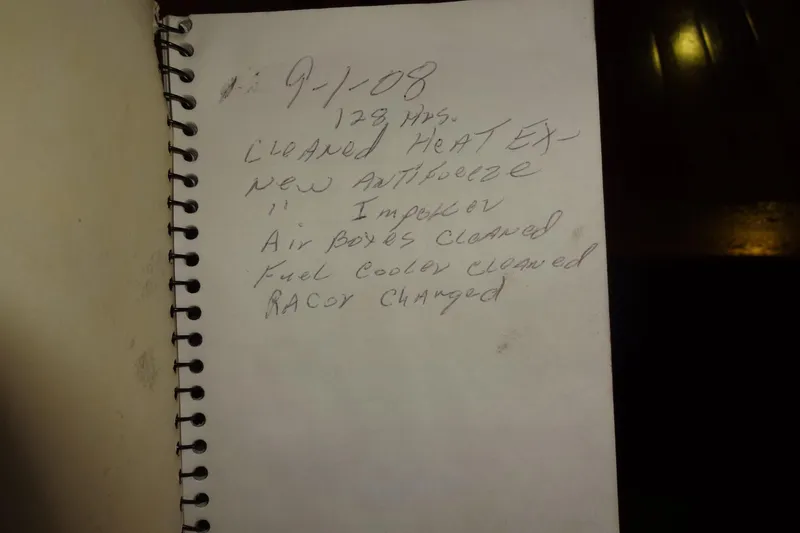 9-1-08
128 Hrs.
CLEANED HEAT EX-
NEW ANTIFREEZE
" Impeller
AIR BOXES CLEANED
FUEL COOLER CLEANED
RACOR CHANGED